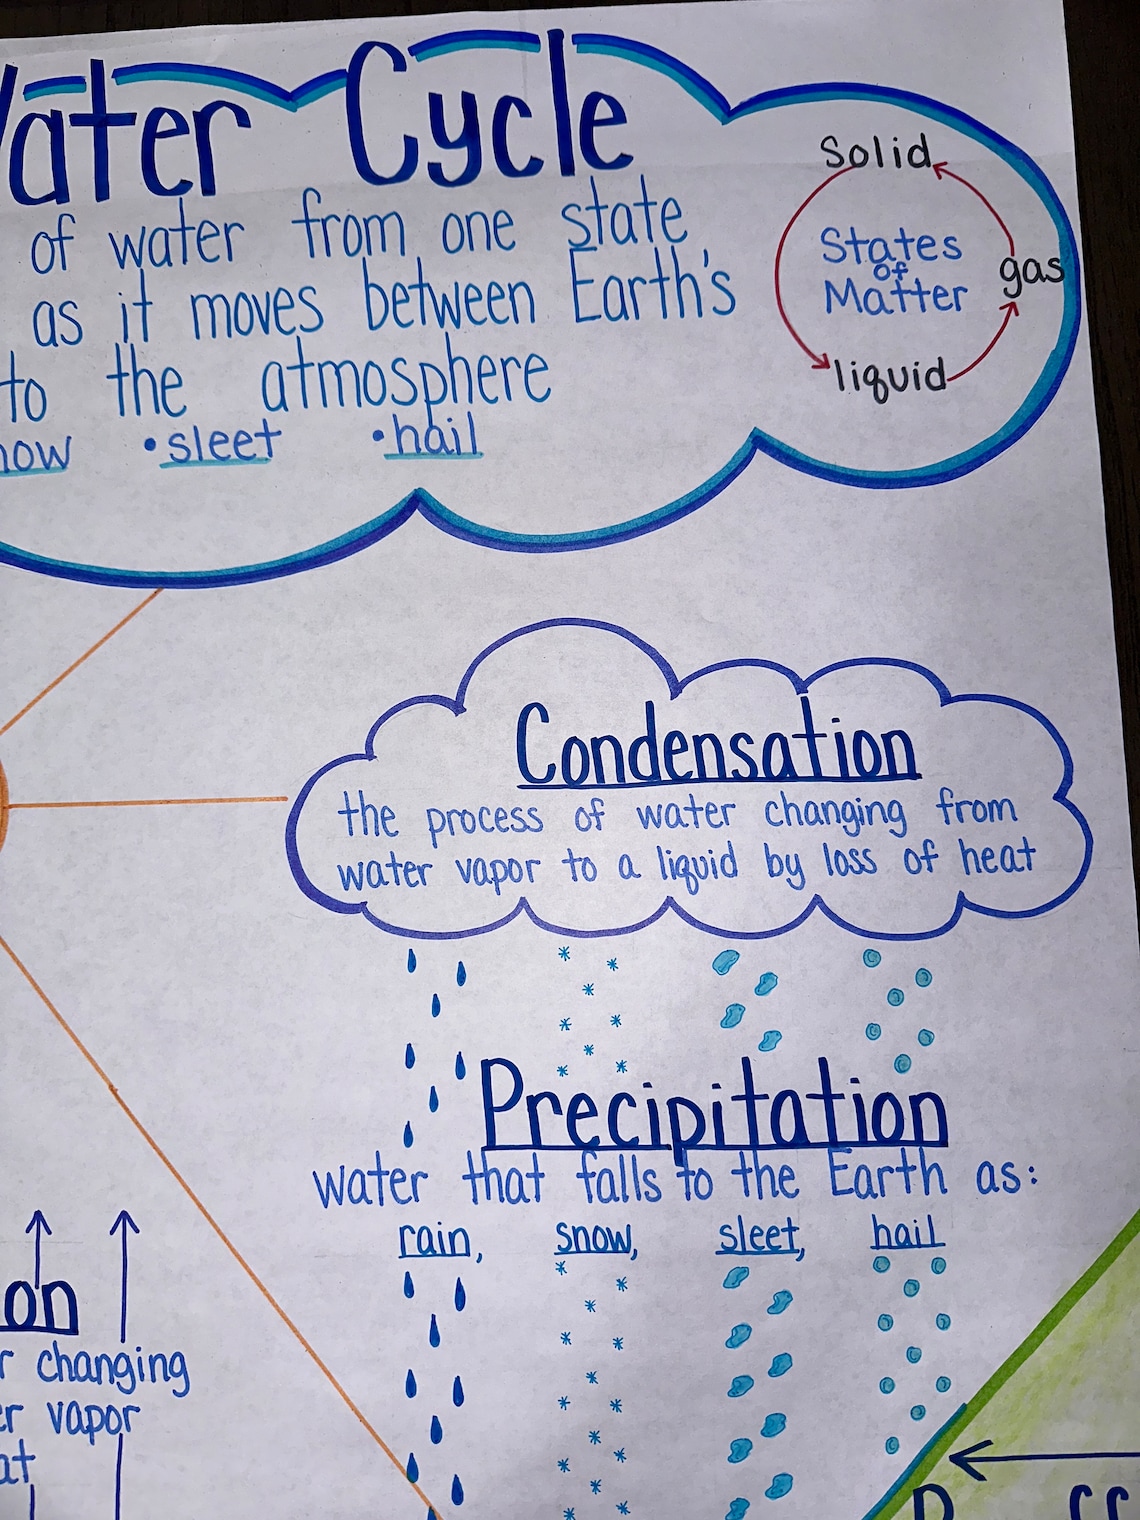 Water Cycle
of water from one state,
as it moves between Earth's
to the atmosphere
•sleet •hail
Solid
States
of
Matter
gas
liquid
Condensation
the process of water changing from
water vapor to a liquid by loss of heat
Precipitation
water that falls to the Earth as:
rain, snow, sleet, hail
on
changing
vapor